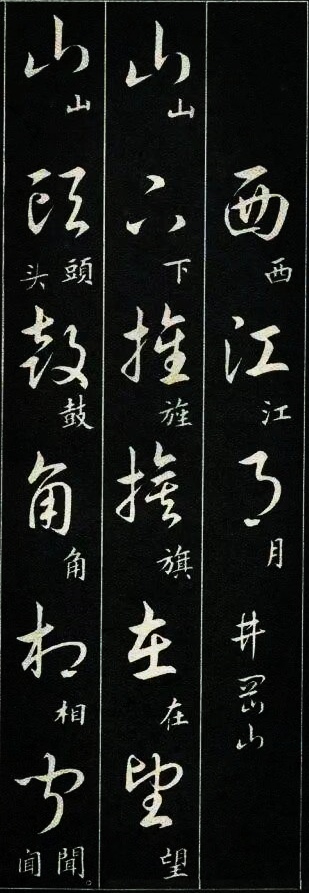 西江月 井岡山
西江月
山下旌旗在望
山下旌旗在望
山头鼓角相闻
山頭头鼓角相聞闻。